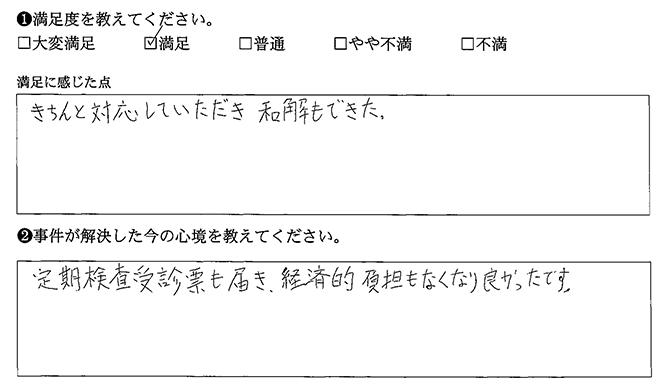 ❶満足度を教えてください。
☐大変満足 ☑満足 ☐普通 ☐やや不満 ☐不満
満足に感じた点
きちんと対応していただき 和解もできた。
❷事件が解決した今の心境を教えてください。
定期検査受診票も届き、経済的負担もなくなり良かったです。